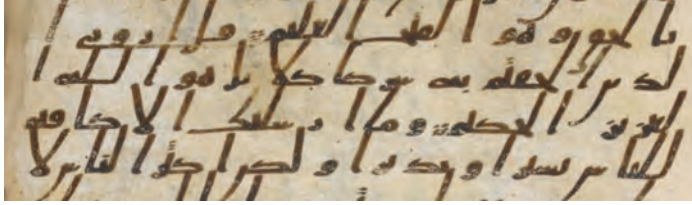 بالحق و هو الفتح العليم قل ارونى
الذين الحقتم به شركا كلا بل هو الله
العزيز الحكيم و ما ارسلنك الا كافه
للناس بشيرا و نذيرا و لكن اكثر الناس لا